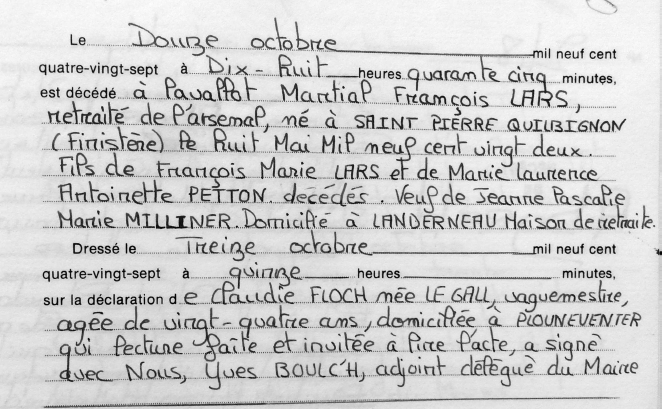 Le Douze octobre mil neuf cent
quatre-vingt-sept à Dix-Huit heures quarante cinq minutes,
est décédé à Pavallot Martial François LARS,
retraité de l'arsenal, né à SAINT PIERRE QUILBIGNON
(Finistère) le Huit Mai Mil neuf cent vingt deux.
Fils de François Marie LARS et de Marie laurence
Antoinette PETTON. décédés. Veuf de Jeanne Pascalie
Marie MILLINER. Domicilié à LANDERNEAU Maison de retraite.
Dressé le Treize octobre mil neuf cent
quatre-vingt-sept à quinze heures minutes,
sur la déclaration de Claudie FLOCH née LE GALL, vaguemestre,
agée de vingt-quatre ans, domiciliée à PLOUNEVENTER
qui lecture faite et invitée à lire l'acte, a signé
avec Nous, Yves BOULC'H, adjoint délégué du Maire